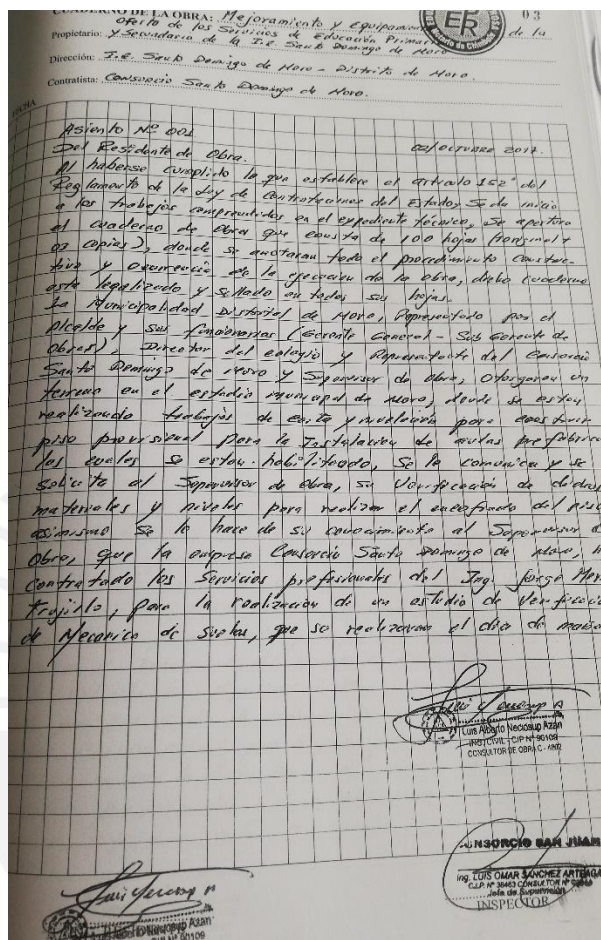 CUADERNO DE LA OBRA: Mejoramiento y Equipamien de la
03
Oferta de los Servicios de Educación Primari
Propietario: y Secundaria de la I.E Santo Domingo de Moro
Dirección: I.E Santo Domingo de Moro - Distrito de Moro.
Contratista: Consorcio Santo Domingo de Moro.
FECHA
Asiento Nº 001
Del Residente de Obra. 02/octubre 2017.
Al haberse cumplido lo que establece el artículo 152° del
Reglamento de la Ley de Contrataciones del Estado, Se da inicio
a los trabajos comprendidos en el expediente técnico, Se apertura
el cuaderno de Obra que consta de 100 hojas (1original +
03 copias), donde se anotaran todo el procedimiento Construc-
tivo y ocurrencia de la ejecución de la obra, dicho Cuaderno
esta legalizado y Sellado en todas sus hojas.
La Municipalidad Distrital de Moro, Representado por el
Alcalde y sus funcionarios (Gerente General - Sub Gerente de
Obras), Director del colegio y Representante del Consorcio
Santo Domingo de Moro y Supervisor de Obra, Otorgaron un
terreno en el estadio municipal de Moro, donde se estan
realizando trabajos de corte y nivelación para construir
piso provisional Para la Instalacion de aulas prefabrica
las cuales se estan habilitando, Se le comunica y se
Solicita al Supervisor de Obra, su Verificación de dichos
materiales y niveles para realizar el encofrado del piso
asimismo Se le hace de su conocimiento al Supervisor d
Obra, que la empresa Consorcio Santo Domingo de Moro, h
Contratado los Servicios profesionales del Ing. Jorge
Trujillo, para la realización de un estudio de Verificació
de Mecanica de Suelos, que se realizaran el día de mañan
Luis Alberto Neciosup Azan
ING. CIVIL - CIP Nº 90109
CONSULTOR DE OBRA C - 4802
CONSORCIO SAN JUAN
Ing. LUIS OMAR SANCHEZ ARTEAGA
C.I.P. Nº 38463 CONSULTOR Nº
Jefe de Supervisión
INSPECTOR
Luis Alberto Neciosup Azan
CIP Nº 90109